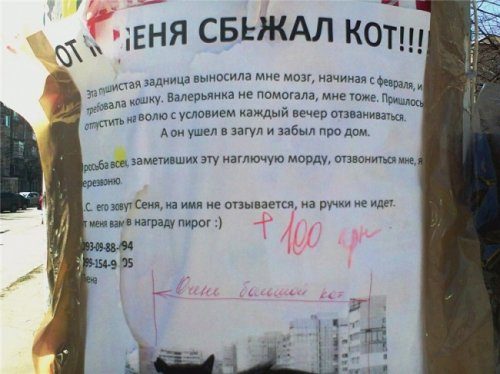 ОТ МЕНЯ СБЕЖАЛ КОТ!!!!
Эта пушистая задница выносила мне мозг, начиная с февраля, и
требовала кошку. Валерьянка не помогала, мне тоже. Пришлось
отпустить на волю с условием каждый вечер отзваниваться.
А он ушел в загул и забыл про дом.
просьба всех, заметивших эту наглючую морду, отзвониться мне, я
перезвоню.
.С. его зовут Сеня, на имя не отзывается, на ручки не идет.
от меня вам в награду пирог :)
+ 100 грн
093-09-88- 94
099-154-9 05
Очень большой кот